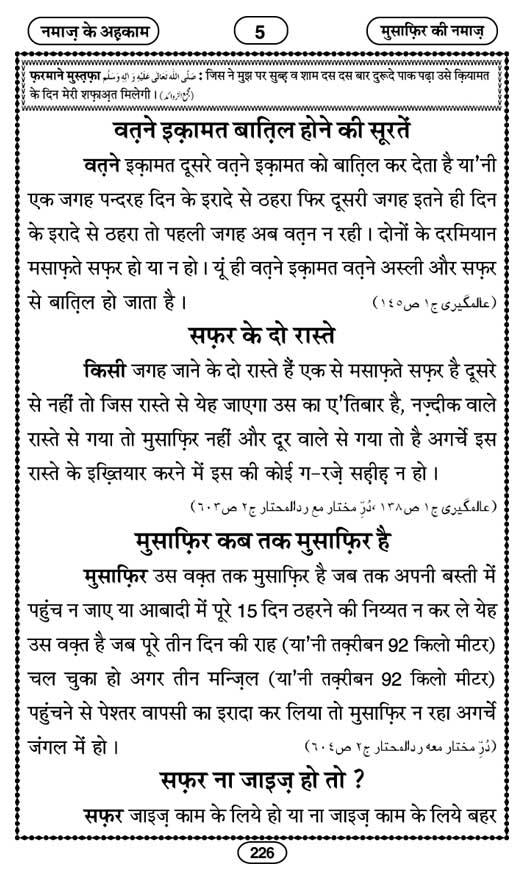 नमाज़ के अह़काम
5
मुसाफ़िर की नमाज़
फ़रमाने मुस्त़फ़ा صَلَّى اللهُ تَعَالٰى عَلَيْهِ وَاٰلِهٖ وَسَلَّم : जिस ने मुझ पर सुब्ह़ व शाम दस दस बार दुरूदे पाक पढ़ा उसे क़ियामत
के दिन मेरी शफ़ाअ़त मिलेगी । (مجمع الزوائد)
वत़ने इक़ामत बात़िल होने की सूरतें
वत़ने इक़ामत दूसरे वत़ने इक़ामत को बात़िल कर देता है या'नी
एक जगह पन्दरह दिन के इरादे से ठहरा फिर दूसरी जगह इतने ही दिन
के इरादे से ठहरा तो पहली जगह अब वत़न न रही । दोनों के दरमियान
मसाफ़ते सफ़र हो या न हो । यूं ही वत़ने इक़ामत वत़ने अस्ली और सफ़र
से बात़िल हो जाता है । (عالمگیری ج۱ ص۱٤٥)
सफ़र के दो रास्ते
किसी जगह जाने के दो रास्ते हैं एक से मसाफ़ते सफ़र है दूसरे
से नहीं तो जिस रास्ते से येह जाएगा उस का ए'तिबार है, नज़्दीक वाले
रास्ते से गया तो मुसाफ़िर नहीं और दूर वाले से गया तो है अगर्चे इस
रास्ते के इख़्तियार करने में इस की कोई ग-रज़े सह़ीह़ न हो ।
(عالمگیری ج۱ ص۱۳۸، دُرِّ مختار مع ردالمحتار ج۲ ص٦۰۳)
मुसाफ़िर कब तक मुसाफ़िर है
मुसाफ़िर उस वक़्त तक मुसाफ़िर है जब तक अपनी बस्ती में
पहुंच न जाए या आबादी में पूरे 15 दिन ठहरने की निय्यत न कर ले येह
उस वक़्त है जब पूरे तीन दिन की राह (या'नी तक़्रीबन 92 किलो मीटर)
चल चुका हो अगर तीन मन्ज़िल (या'नी तक़्रीबन 92 किलो मीटर)
पहुंचने से पेश्तर वापसी का इरादा कर लिया तो मुसाफ़िर न रहा अगर्चे
जंगल में हो । (دُرِّ مختار معه ردالمحتار ج۲ ص٦۰٤)
सफ़र ना जाइज़ हो तो ?
सफ़र जाइज़ काम के लिये हो या ना जाइज़ काम के लिये बहर
226